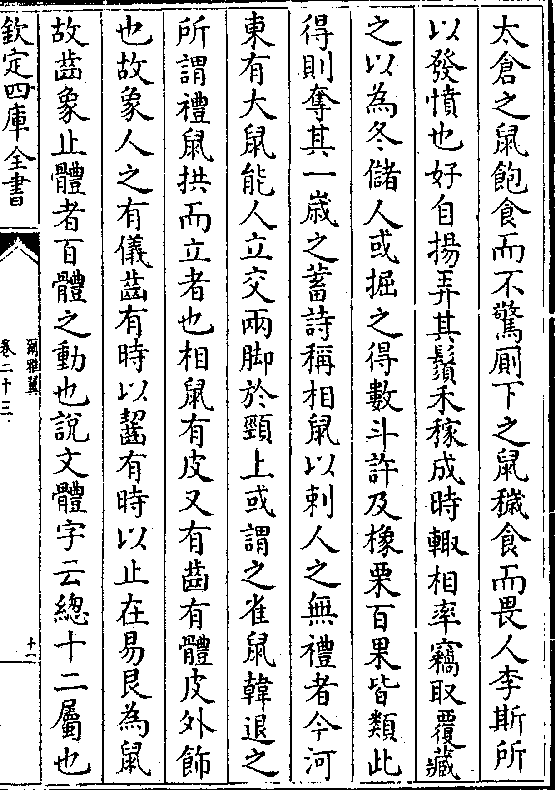 太倉之鼠飽食而不驚厠下之鼠穢食而畏人李斯所
以發憤也好自揚弄其鬚禾稼成時輙相率竊取覆藏
之以為冬儲人或掘之得數斗許及橡栗百果皆類此
得則奪其一歲之蓄詩稱相鼠以刺人之無禮者今河
東有大鼠能人立交兩脚於頸上或謂之雀鼠韓退之
所謂禮鼠拱而立者也相鼠有皮又有齒有體皮外飾
也故象人之有儀齒有時以齧有時以止在易艮為鼠
故齒象止體者百體之動也說文體字云總十二屬也
欽定四庫全書
爾雅翼
卷二十三
十一